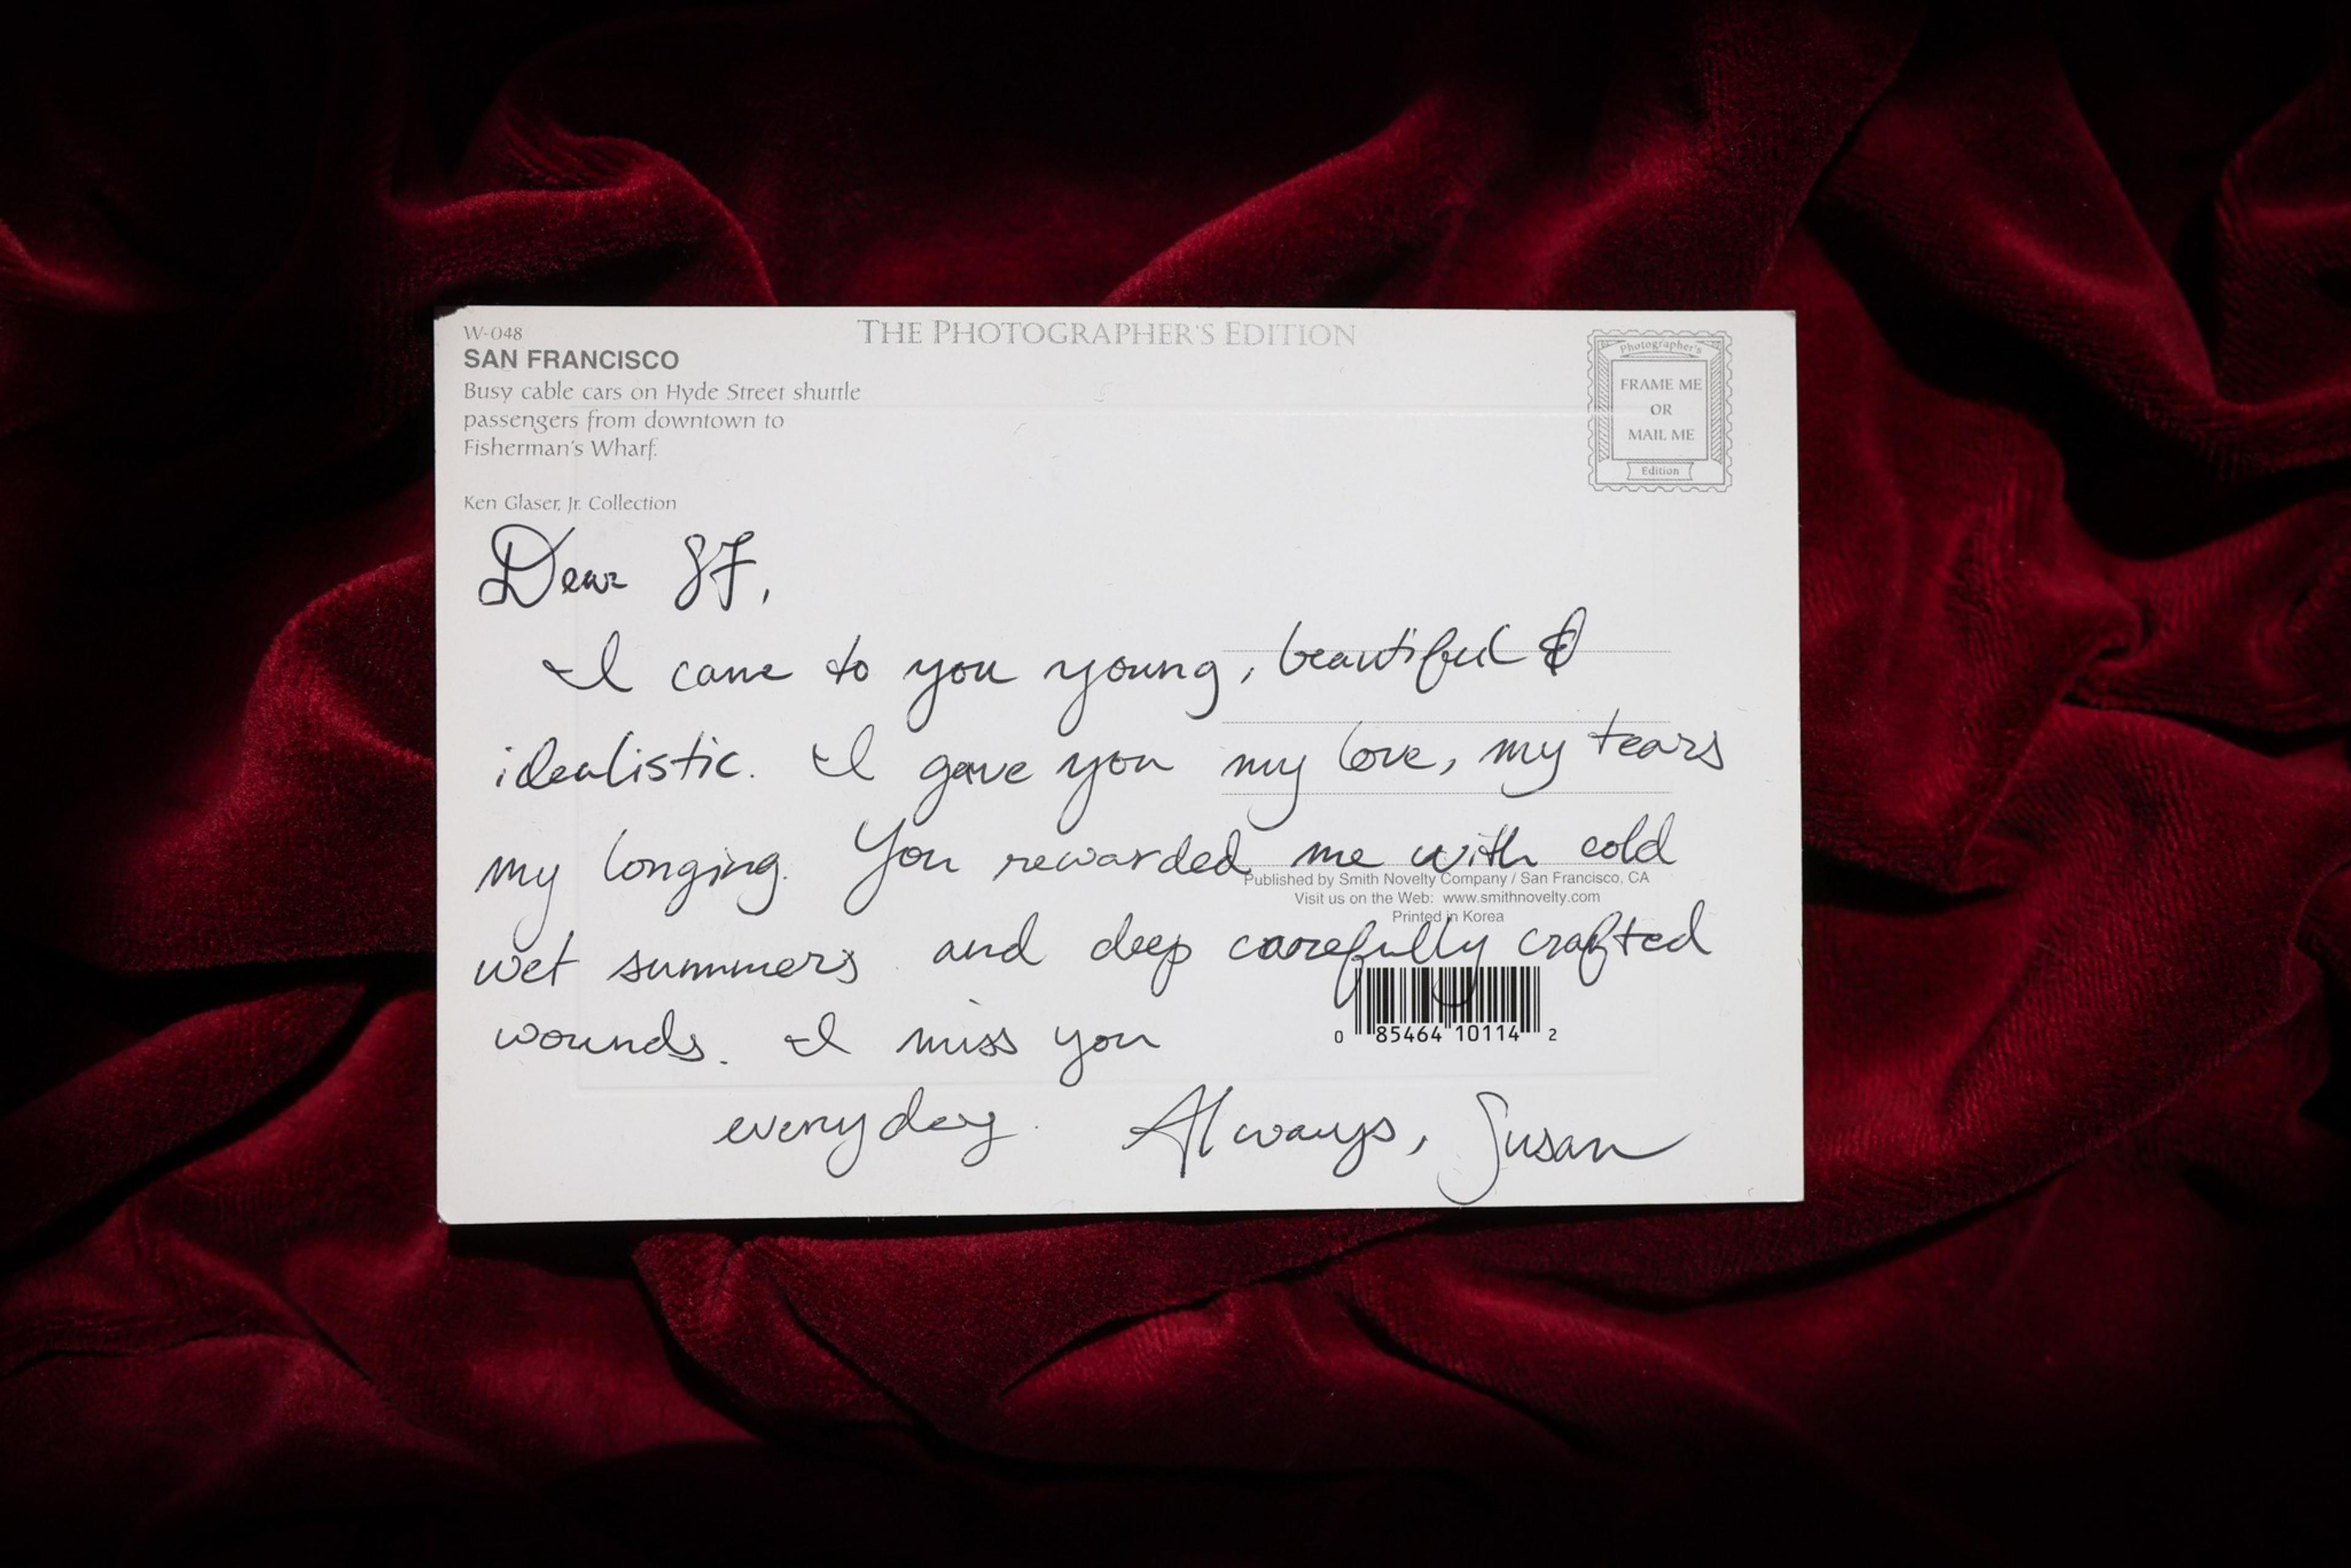 W-048
SAN FRANCISCO
Busy cable cars on Hyde Street shuttle
passengers from downtown to
Fisherman's Wharf.
Ken Glaser, Jr. Collection
THE PHOTOGRAPHER'S EDITION
Photographer's
FRAME ME
OR
MAIL ME
Edition
Dear SF,
I came to you young, beautiful &
idealistic. I gave you my love, my tears
my longing. You rewarded me with cold
wet summers and deep carefully crafted
wounds. I miss you
everyday. Always, Susan
Published by Smith Novelty Company / San Francisco, CA
Visit us on the Web: www.smithnovelty.com
Printed in Korea
0 85464 10114 2